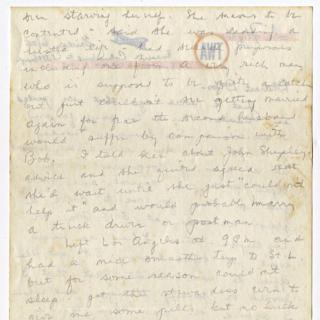 been starving herself. She seems to be
contented, said she was leading a
had several proposals
including one from a rich man
who is supposed to be quite a catch
but just couldn't see getting married
again for fear the second husband
would suffer by comparison with
Bob. I told her about John Shepley's
advice and she just sighed said
she'd wait until she "just couldn't
help it" and would probably marry
a truck driver or postman.
Left Los Angeles at 9 P.M. and
had a nice smooth trip to St. L.
but for some reason could not
sleep. got the stewardess even to
give me some pills but no luck